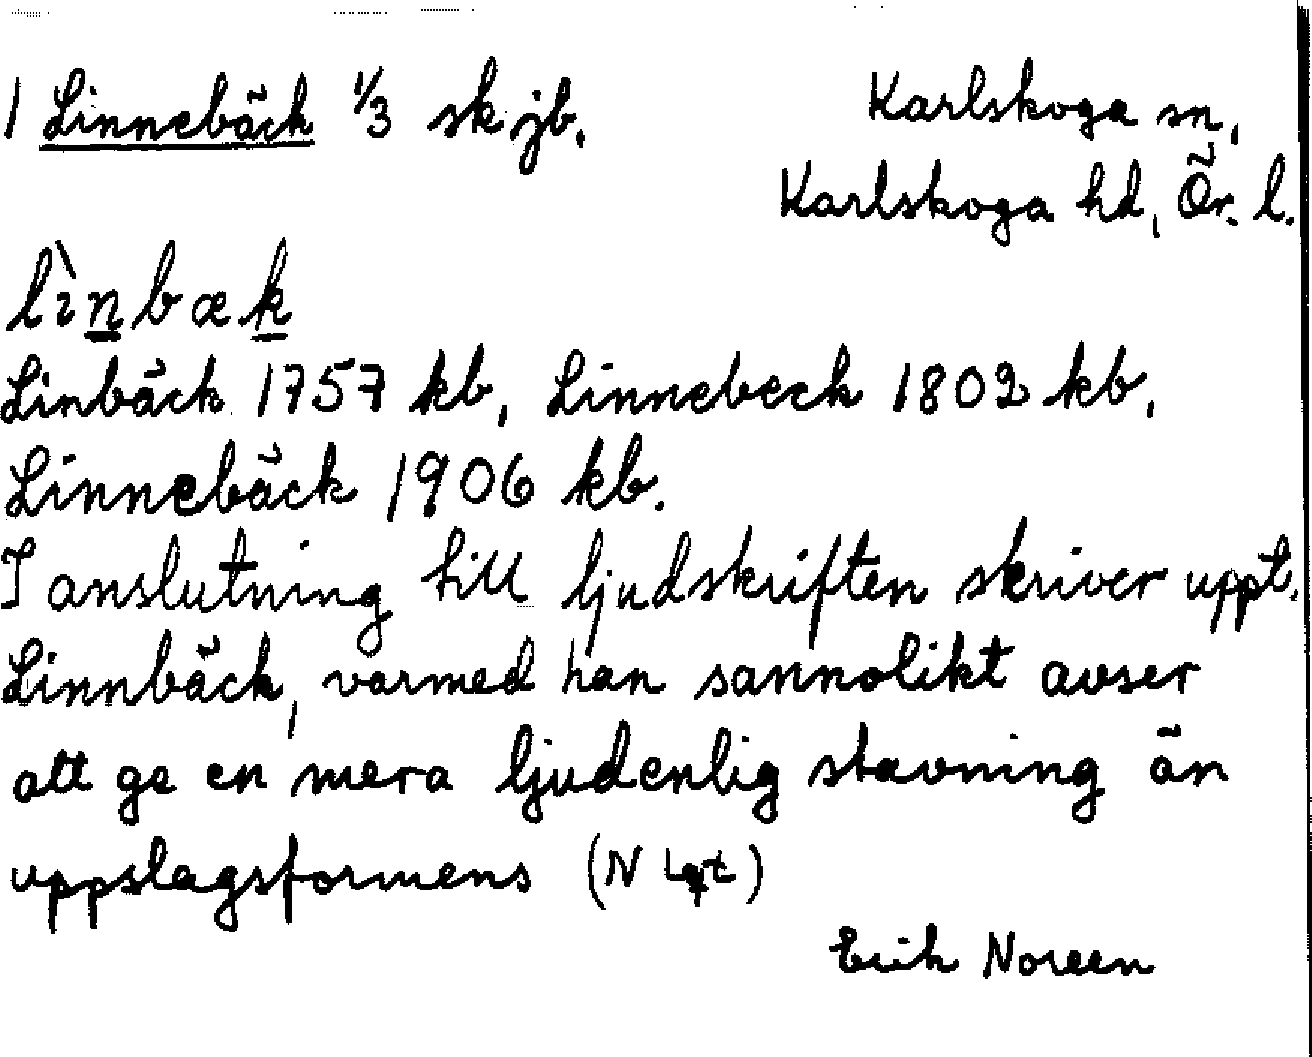 1 Linnebäck 1/3 skjb.
Karlskoga sn,
Karlskoga hd, Ör. l.
lìnbæk
Linbäck 1757 kb, Linnebeck 1802 kb,
Linnebäck 1906 kb.
I anslutning till ljudskriften skriver uppt.
Linnbäck, varmed han sannolikt avser
att ge en mera ljudenlig stavning än
uppslagsformens (N Lgt)
Erik Noreen